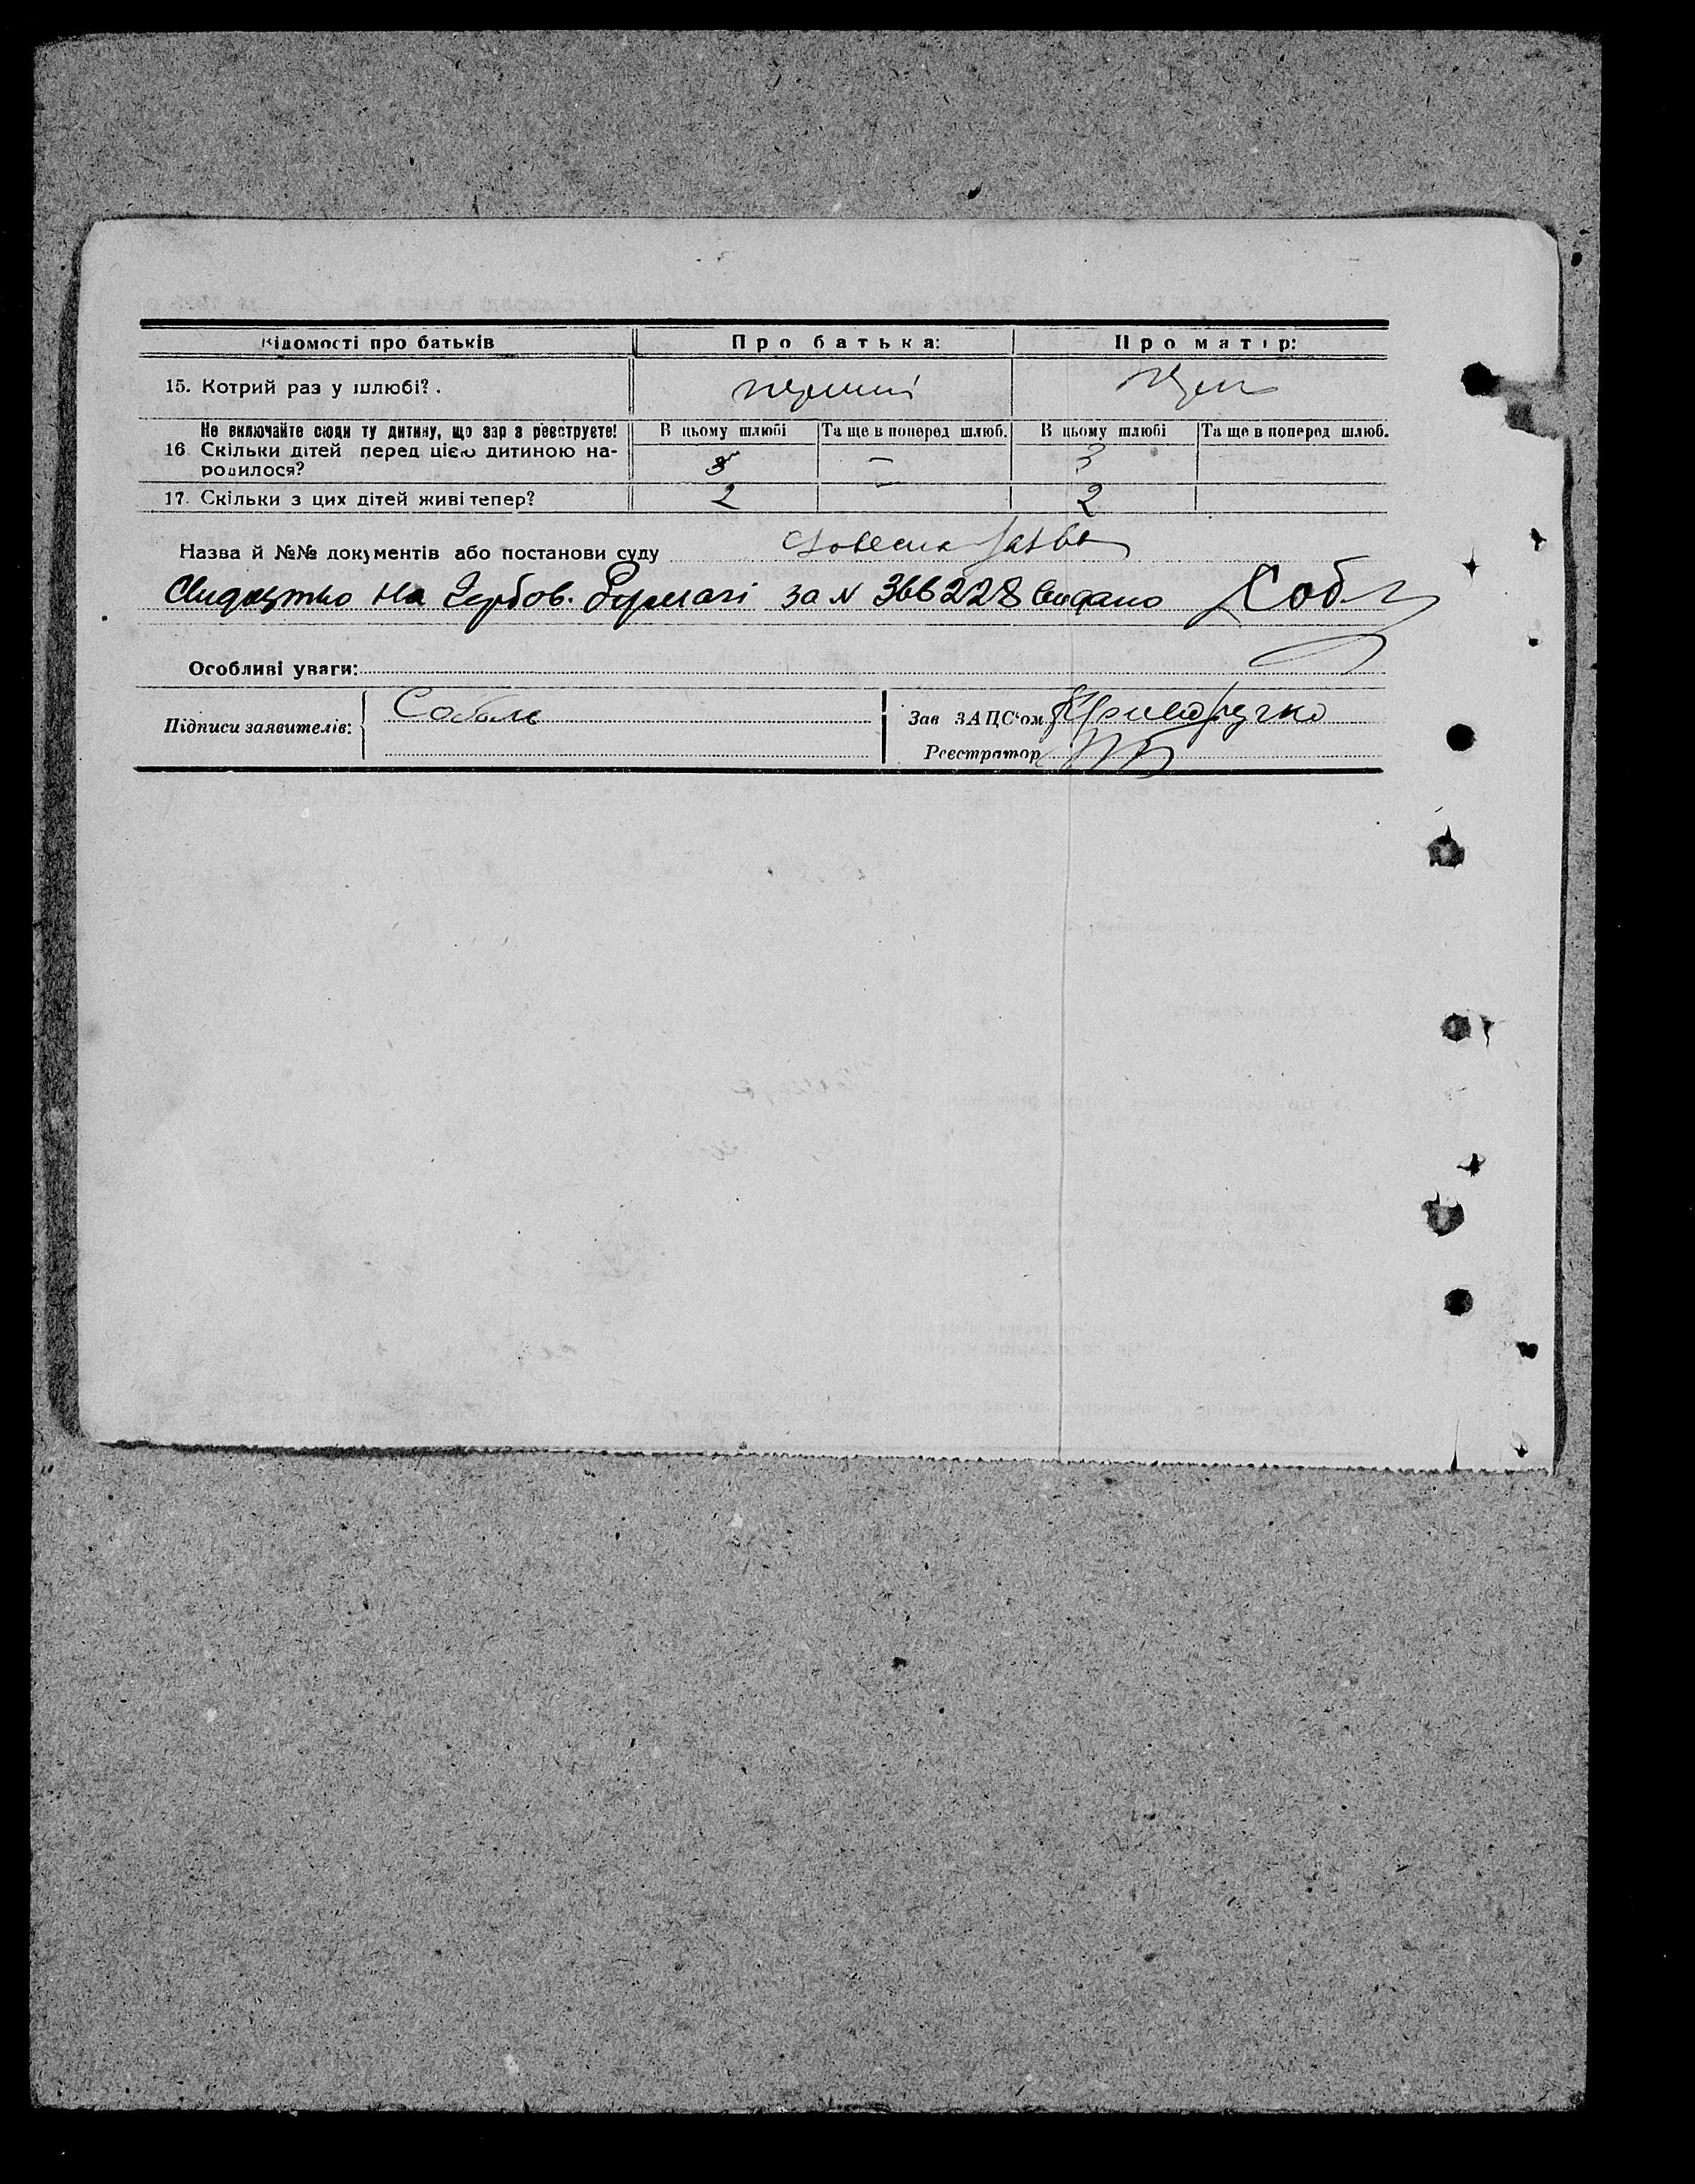 Відомості про батьків Про батька: Про матір:
15. Котрий раз у шлюбі? перший перш
Не включайте сюди ту дитину, що зараз реєструєте! В цьому шлюбі Та ще в поперед шлюб. В цьому шлюбі Та ще в поперед шлюб.
16. Скільки дітей перед цією дитиною на- 3 — 3
родилося?
17. Скільки з цих дітей живі тепер? 2 — 2
Назва й №№ документів або постанови суду словесна заява
Свидоцтво на гербов. бумазі за N 366228 видано Собл
Особливі уваги:
Підписи заявителів: Соболь Зав ЗАЦС'ом Криворучко
Реєстратор